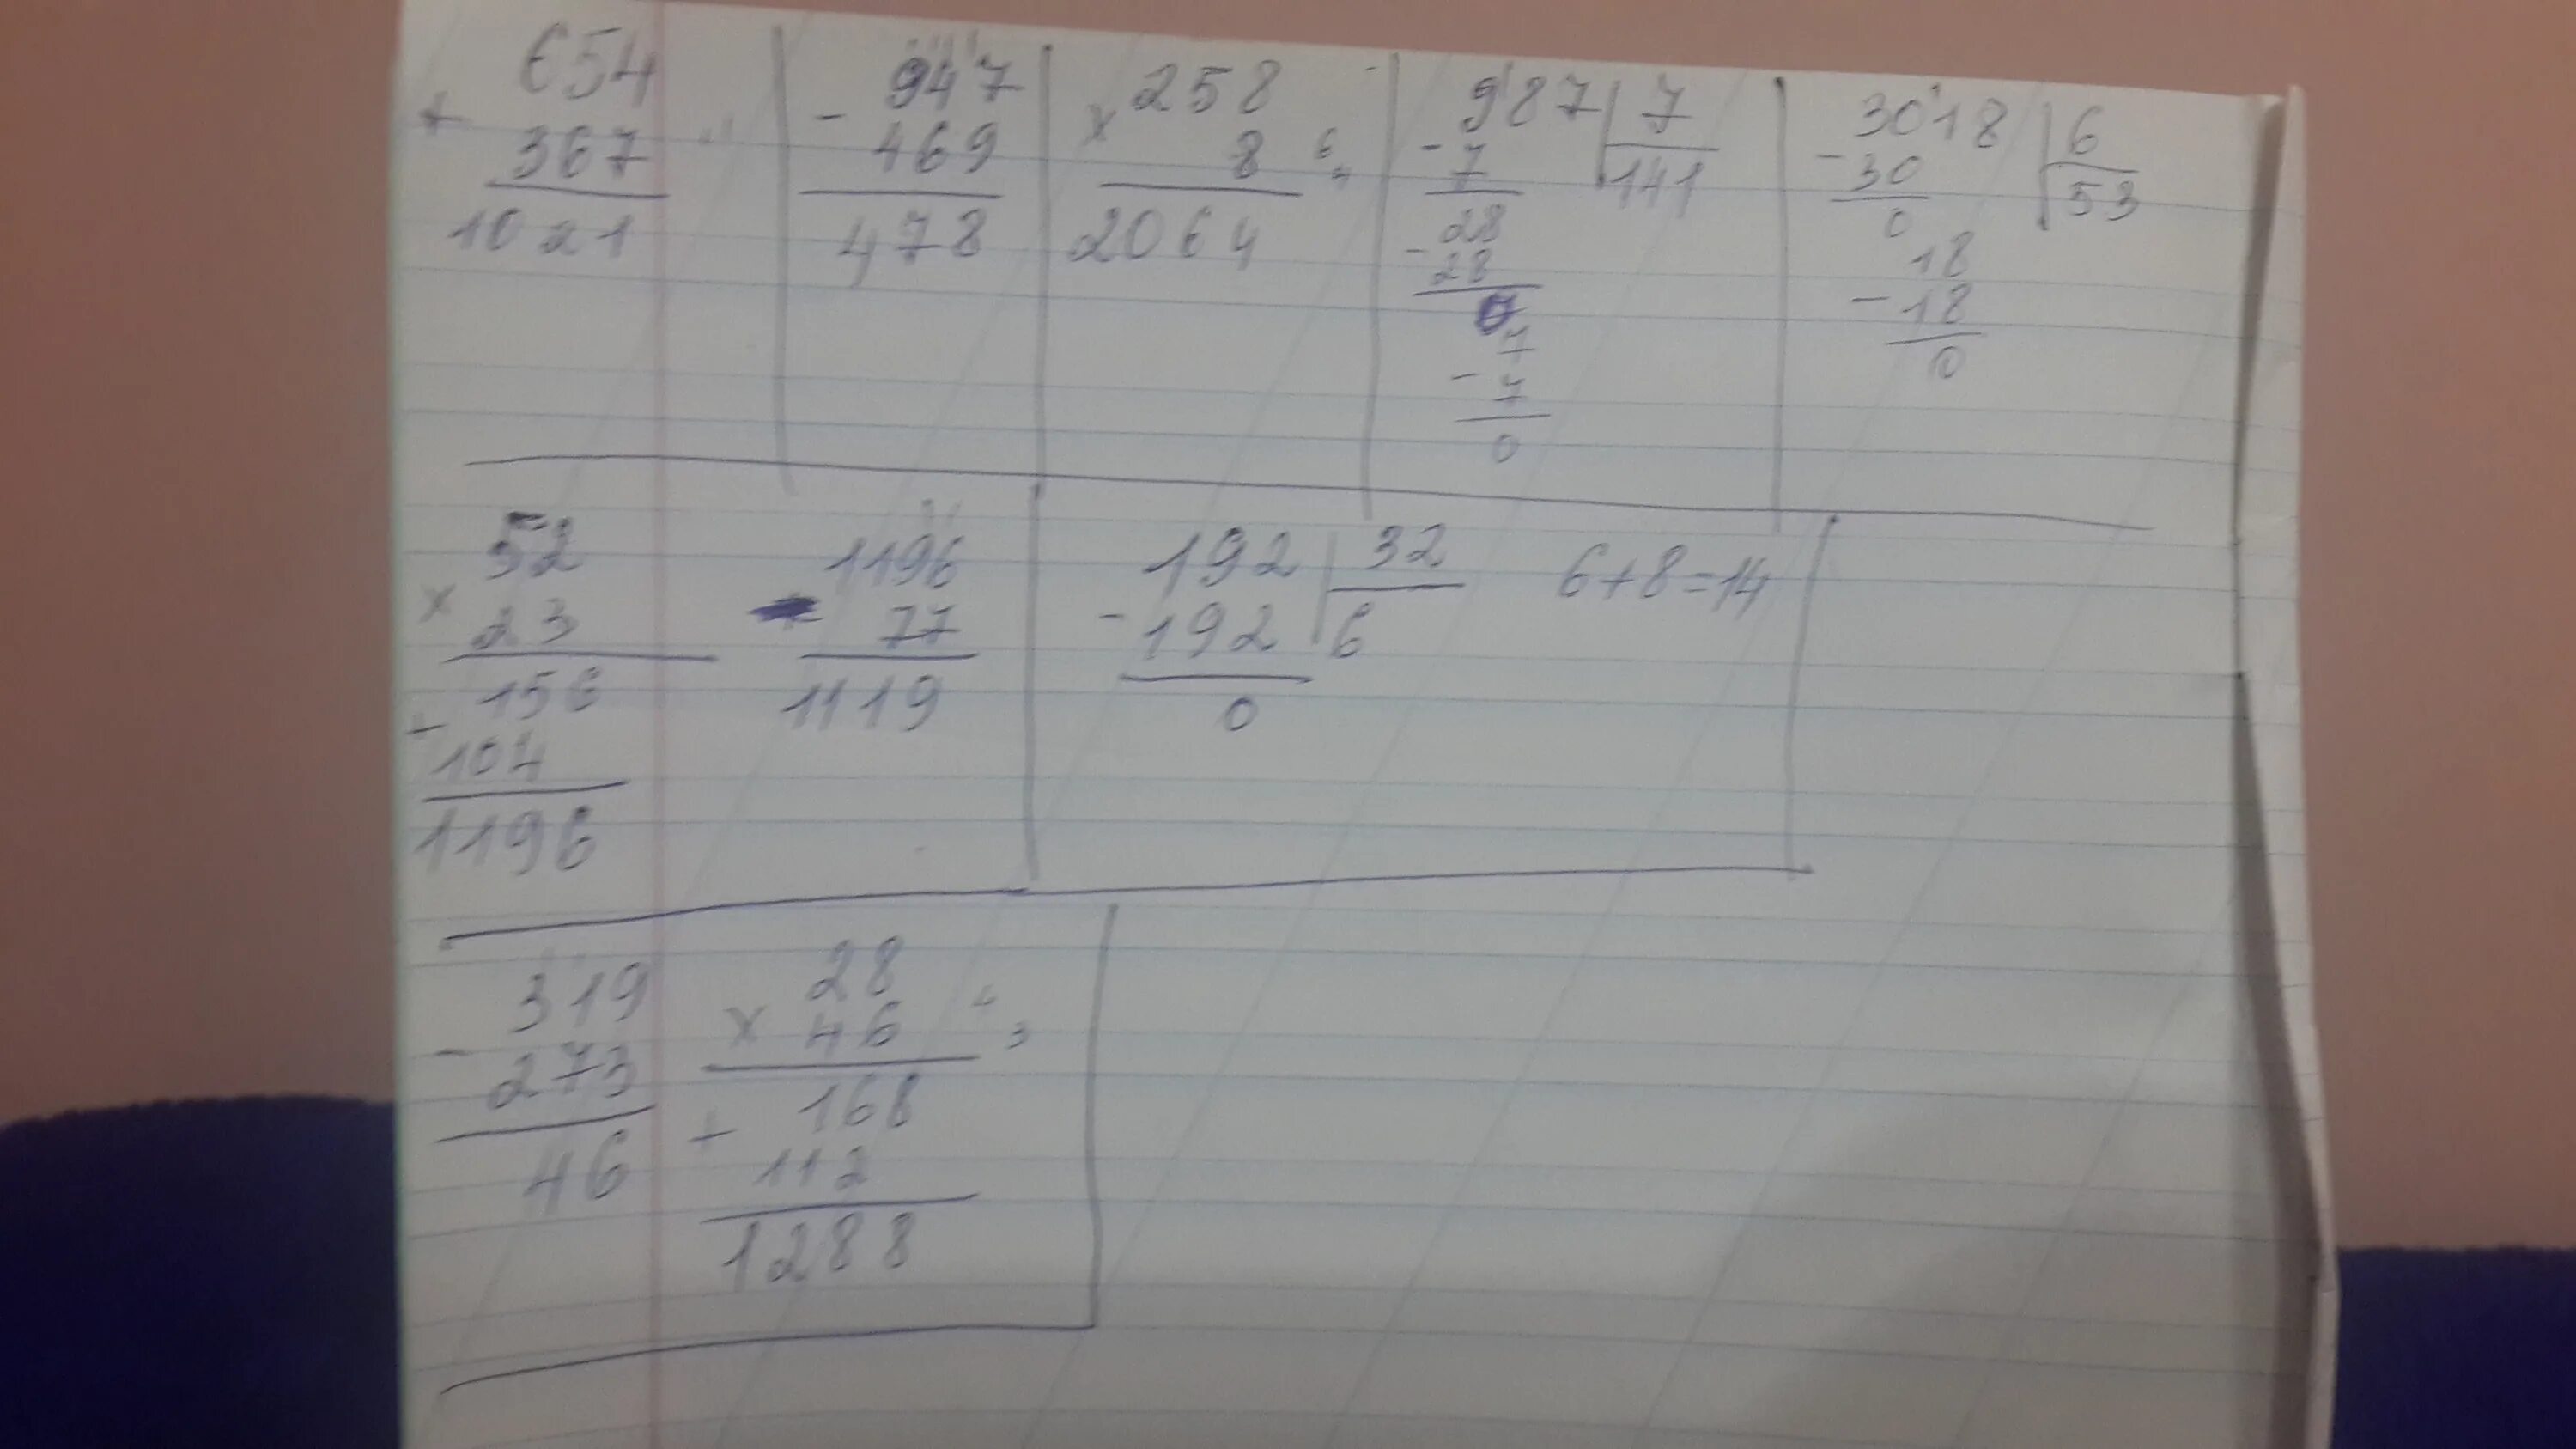 654
+
367
1021
947
-
469
478
258
x
8
6
2064
987 7
- 7 141
28
- 28
0
7
- 7
0
3018 6
- 30 53
0
18
- 18
0
52
x
23
156
+
104
1196
1196
77
1119
192 32
- 192 6
0
6+8=14
319
-
273
46
28
x 46
4
3
168
+
112
1288